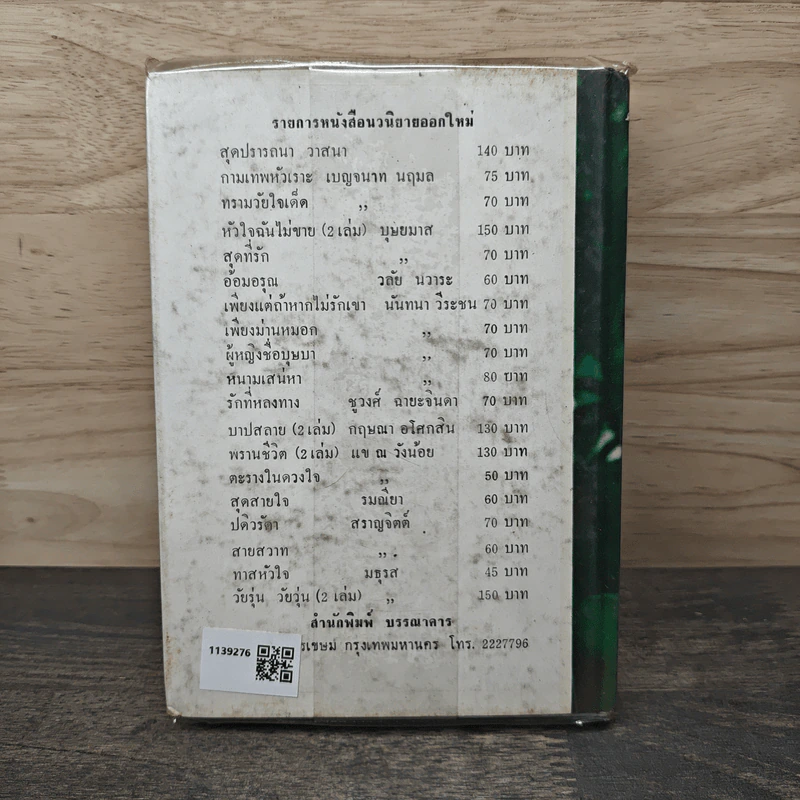 รายการหนังสือนวนิยายออกใหม่
สุดปรารถนา วาสนา 140 บาท
กามเทพหัวเราะ เบญจนาท นฤมล 75 บาท
ทรามวัยใจเด็ด ,, 70 บาท
หัวใจฉันไม่ขาย (2 เล่ม) บุษยมาส 150 บาท
สุดที่รัก ,, 70 บาท
อ้อมอรุณ วลัย นวาระ 60 บาท
เพียงแต่ถ้าหากไม่รักเขา นันทนา วีระชน 70 บาท
เพียงม่านหมอก ,, 70 บาท
ผู้หญิงชื่อบุษบา ,, 70 บาท
หนามเสน่หา ,, 80 บาท
รักที่หลงทาง ชูวงศ์ ฉายะจินดา 70 บาท
บาปสลาย (2 เล่ม) กฤษณา อโศกสิน 130 บาท
พรานชีวิต (2 เล่ม) แข ณ วังน้อย 130 บาท
ตะรางในดวงใจ ,, 50 บาท
สุดสายใจ รมณียา 60 บาท
ปดิวรัดา สราญจิตต์ 70 บาท
สายสวาท ,, 60 บาท
ทาสหัวใจ มธุรส 45 บาท
วัยรุ่น วัยวุ่น (2 เล่ม) ,, 150 บาท
สำนักพิมพ์ บรรณาคาร
กรุงเทพมหานคร โทร. 2227796
1139276